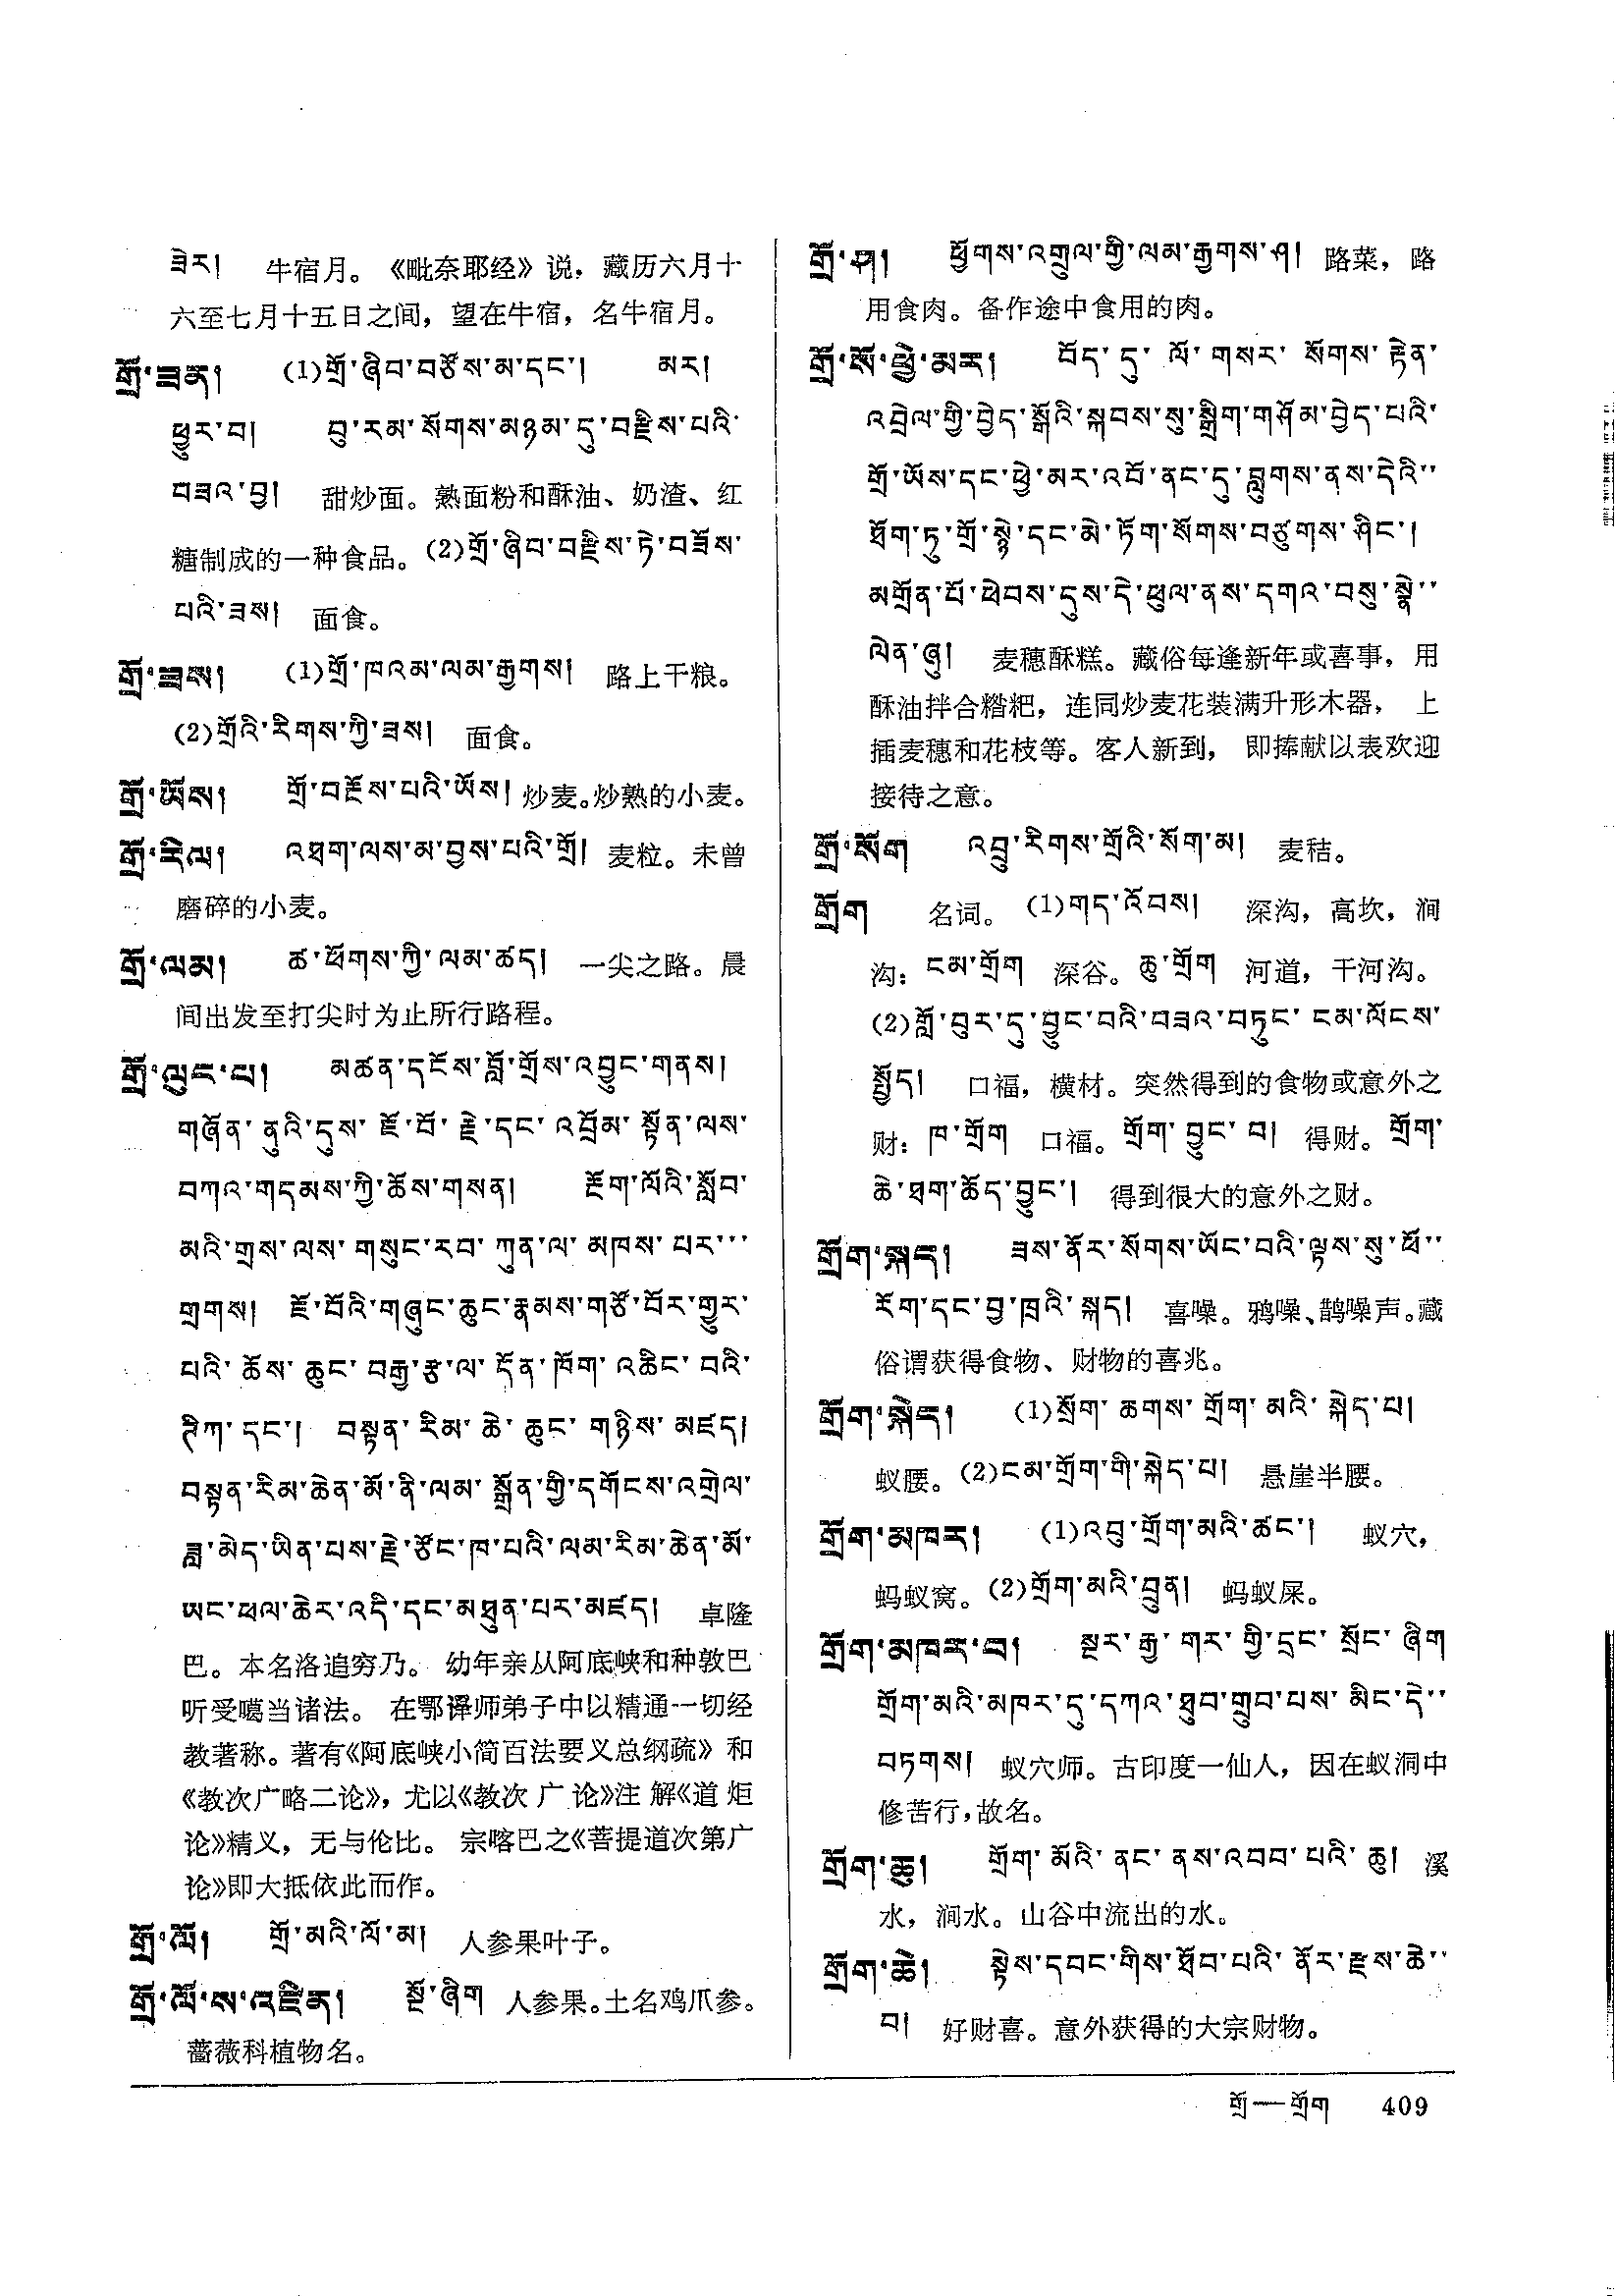 ཟེར། 牛宿月。《毗奈耶经》说，藏历六月十
六至七月十五日之间，望在牛宿，名牛宿月。
གྲོ་ཟན། (1)གྲོ་ཞིབ་བཙོས་མ་དང་། མར།
ཕྱུར་བ། བུ་རམ་སོགས་མཉམ་དུ་བརྫིས་པའི་
བཟའ་བྱ། 甜炒面。熟面粉和酥油、奶渣、红
糖制成的一种食品。(2)གྲོ་ཞིབ་བརྫིས་ཏེ་བཟོས་
པའི་ཟས། 面食。
གྲོ་ཟས། (1)གྲོ་ཁའམ་ལམ་རྒྱགས། 路上干粮。
(2)གྲོའི་རིགས་ཀྱི་ཟས། 面食。
གྲོ་ཡོས། གྲོ་བརྔོས་པའི་ཡོས། 炒麦。炒熟的小麦。
གྲོ་རིལ། འཐག་ལས་མ་བྱས་པའི་གྲོ། 麦粒。未曾
磨碎的小麦。
གྲོ་ལམ། ཚ་ཕོགས་ཀྱི་ལམ་ཚད། 一尖之路。晨
间出发至打尖时为止所行路程。
གྲོ་ལུང་པ། མཚན་དངོས་བློ་གྲོས་འབྱུང་གནས།
གཞོན་ནུའི་དུས་ཇོ་བོ་རྗེ་དང་འབྲོམ་སྟོན་ལས་
བཀའ་གདམས་ཀྱི་ཆོས་གསན། རྔོག་ལོའི་སློབ་
མའི་གྲས་ལས་གསུང་རབ་ཀུན་ལ་མཁས་པར་་་
གྲགས། ཇོ་བོའི་གཞུང་ཆུང་རྣམས་གཙོ་བོར་གྱུར་
པའི་ཆོས་ཆུང་བརྒྱ་རྩ་ལ་དོན་ཁོག་འཆིང་བའི་
ཊཱིཀ་དང་། བསྟན་རིམ་ཆེ་ཆུང་གཉིས་མཛད།
བསྟན་རིམ་ཆེན་མོ་ནི་ལམ་སྒྲོན་གྱི་དགོངས་འགྲེལ་
ཟླ་མེད་ཡིན་པས་རྗེ་ཙོང་ཁ་པའི་ལམ་རིམ་ཆེན་མོ་
ཡང་ཕལ་ཆེར་འདི་དང་མཐུན་པར་མཛད། 卓隆
巴。本名洛追穷乃。 幼年亲从阿底峡和种敦巴
听受噶当诸法。 在鄂译师弟子中以精通一切经
教著称。著有《阿底峡小简百法要义总纲疏》和
《教次广略二论》，尤以《教次广论》注解《道炬
论》精义，无与伦比。 宗喀巴之《菩提道次第广
论》即大抵依此而作。
གྲོ་ལོ། གྲོ་མའི་ལོ་མ། 人参果叶子。
གྲོ་ལོ་ས་འཛིན། སྔོ་ཞིག 人参果。土名鸡爪参。
蔷薇科植物名。
གྲོ་ཤ། ཕྱོགས་འགྲུལ་གྱི་ལམ་རྒྱགས་ཤ། 路菜，路
用食肉。备作途中食用的肉。
གྲོ་སོ་ཕྱེ་མར། བོད་དུ་ལོ་གསར་སོགས་རྟེན་
འབྲེལ་གྱི་བྱེད་སྒོའི་སྐབས་སུ་སྒྲིག་གཤོམ་བྱེད་པའི་
གྲོ་ཡོས་དང་ཕྱེ་མར་འབོ་ནང་དུ་བླུགས་ནས་དེའི་་
ཐོག་ཏུ་གྲོ་སྙེ་དང་མེ་ཏོག་སོགས་བཙུགས་ཤིང་།
མགྲོན་པོ་ཕེབས་དུས་དེ་ཕུལ་ནས་དགའ་བསུ་སྣེ་་
ལེན་ཞུ། 麦穗酥糕。藏俗每逢新年或喜事，用
酥油拌合糌粑，连同炒麦花装满升形木器， 上
插麦穗和花枝等。客人新到， 即捧献以表欢迎
接待之意。
གྲོ་སོག འབྲུ་རིགས་གྲོའི་སོག་མ། 麦秸。
གྲོག 名词。(1)གད་འོབས། 深沟，高坎，涧
沟：ངམ་གྲོག 深谷。ཆུ་གྲོག 河道，干河沟。
(2)གློ་བུར་དུ་བྱུང་བའི་བཟའ་བཏུང་ངམ་ལོངས་
སྤྱོད། 口福，横材。突然得到的食物或意外之
财：ཁ་གྲོག 口福。གྲོག་བྱུང་བ། 得财。གྲོག་
ཆེ་ཐག་ཆོད་བྱུང་། 得到很大的意外之财。
གྲོག་སྐད། ཟས་ནོར་སོགས་ཡོང་བའི་ལྟས་སུ་ཕོ་་
རོག་དང་བྱ་ཁྲའི་སྐད། 喜噪。鸦噪、鹊噪声。藏
俗谓获得食物、财物的喜兆。
གྲོག་སྐེད། (1)སྲོག་ཆགས་གྲོག་མའི་སྐེད་པ།
蚁腰。(2)ངམ་གྲོག་གི་སྐེད་པ། 悬崖半腰。
གྲོག་མཁར། (1)འབུ་གྲོག་མའི་ཚང་། 蚁穴，
蚂蚁窝。(2)གྲོག་མའི་བྲུན། 蚂蚁屎。
གྲོག་མཁར་བ། སྔར་རྒྱ་གར་གྱི་དྲང་སྲོང་ཞིག
གྲོག་མའི་མཁར་དུ་དཀའ་ཐུབ་གྲུབ་པས་མིང་དེ་་
བཏགས། 蚁穴师。古印度一仙人，因在蚁洞中
修苦行，故名。
གྲོག་ཆུ། གྲོག་མོའི་ནང་ནས་འབབ་པའི་ཆུ། 溪
水，涧水。山谷中流出的水。
གྲོག་ཆེ། སྟེས་དབང་གིས་ཐོབ་པའི་ནོར་རྫས་ཆེ་་
བ། 好财喜。意外获得的大宗财物。
གྲོ—གྲོག 409